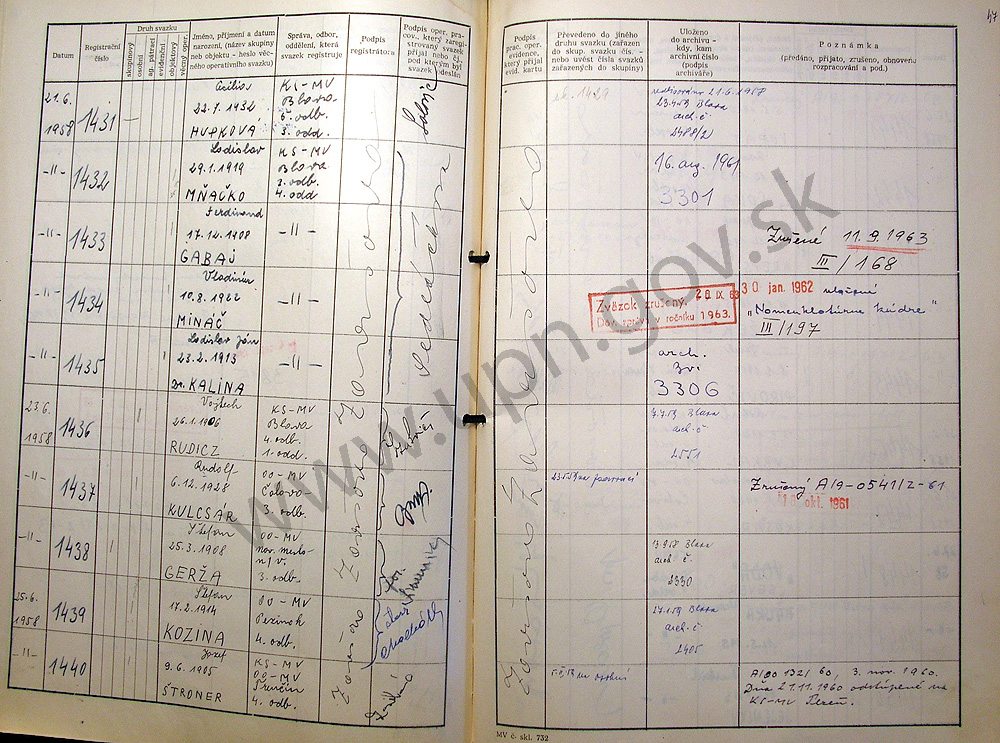 47
Datum
Registrační číslo
Druh svazku
skupinový
osobní
ag. pátrací
evidenční
objektový
věc. oper.
Jméno, příjmení a datum
narození, (název skupiny
neb objektu - heslo věc-
ného operativního svazku)
Správa, odbor,
oddělení, která
svazek registruje
Podpis
registrátora
Podpis oper. pra-
cov., který zaregi-
strovaný svazek
přijal nebo čj.
pod kterým byl
svazek odeslán
Podpis
prac. oper.
evidence,
který přijal
evid. kartu
Převedeno do jiného
druhu svazku (zařazen
do skup. svazku čís. -
nebo uvést čísla svazků
zařazených do skupiny)
Uloženo
do archivu -
kdy, kam
archivní číslo
(podpis
archiváře)
Poznámka
(předáno, přijato, zrušeno, obnoveno
rozpracování a pod.)
21.6.
1958
1431
Cecilia
22.7.1932
HUPKOVÁ
KS-MV
Blava
6. odb.
3. odd.
sk. 1429
21.6.1958
23.4.59 Blava
arch. č
2488/2
-II-
1432
Ladislav
29.1.1919
MŇAČKO
KS-MV
Blava
2. odb.
4. odd
16. aug. 1961
3301
-II-
1433
Ferdinand
17.12.1908
GABAJ
-II-
Zrušené 11.9.1963
III/168
-II-
1434
Vladimír
10.8.1922
MINÁČ
-II-
Zväzok zrušený.
Dov. správy v ročníku 1963.
20 IX 63
30 jan. 1962 uložené
"Nomenklatúrne kádre"
III/197
-II-
1435
Ladislav Ján
23.2.1913
Dr. KALINA
-II-
arch.
Zv.
3306
23.6.
1958
1436
Vojtech
26.1.1906
RUDICZ
KS-MV
Blava
4. odb.
1. odd.
7.7.59 Blava
arch. č
2551
-II-
1437
Rudolf
6.12.1928
KULCSÁR
OO-MV
Čalovo
3. odb.
23.5.59 na pozorovací
Zrušený A/9-0541/2-61
18. okt. 1961
-II-
1438
Štefan
25.3.1908
GERŽA
OO-MV
nov. mesto
n/v.
3. odb.
13.9.58 Blava
arch. č.
2330
25.6.
1958
1439
Štefan
17.2.1914
KOZINA
OO-MV
Pezinok
4. odb.
27.1.59 Blava
arch. č
2405
-II-
1440
Jozef
9.6.1905
ŠTRONER
KS-MV
OO-MV
Trenčín
4. odb.
5.8.58 na osobný
A/00 132/60, 3. nov. 1960.
Dňa 21.11.1960 odstúpené na
KS-MV Plzeň.
Závorsová
Sedláčková
MV č. skl. 732
www.upn.gov.sk